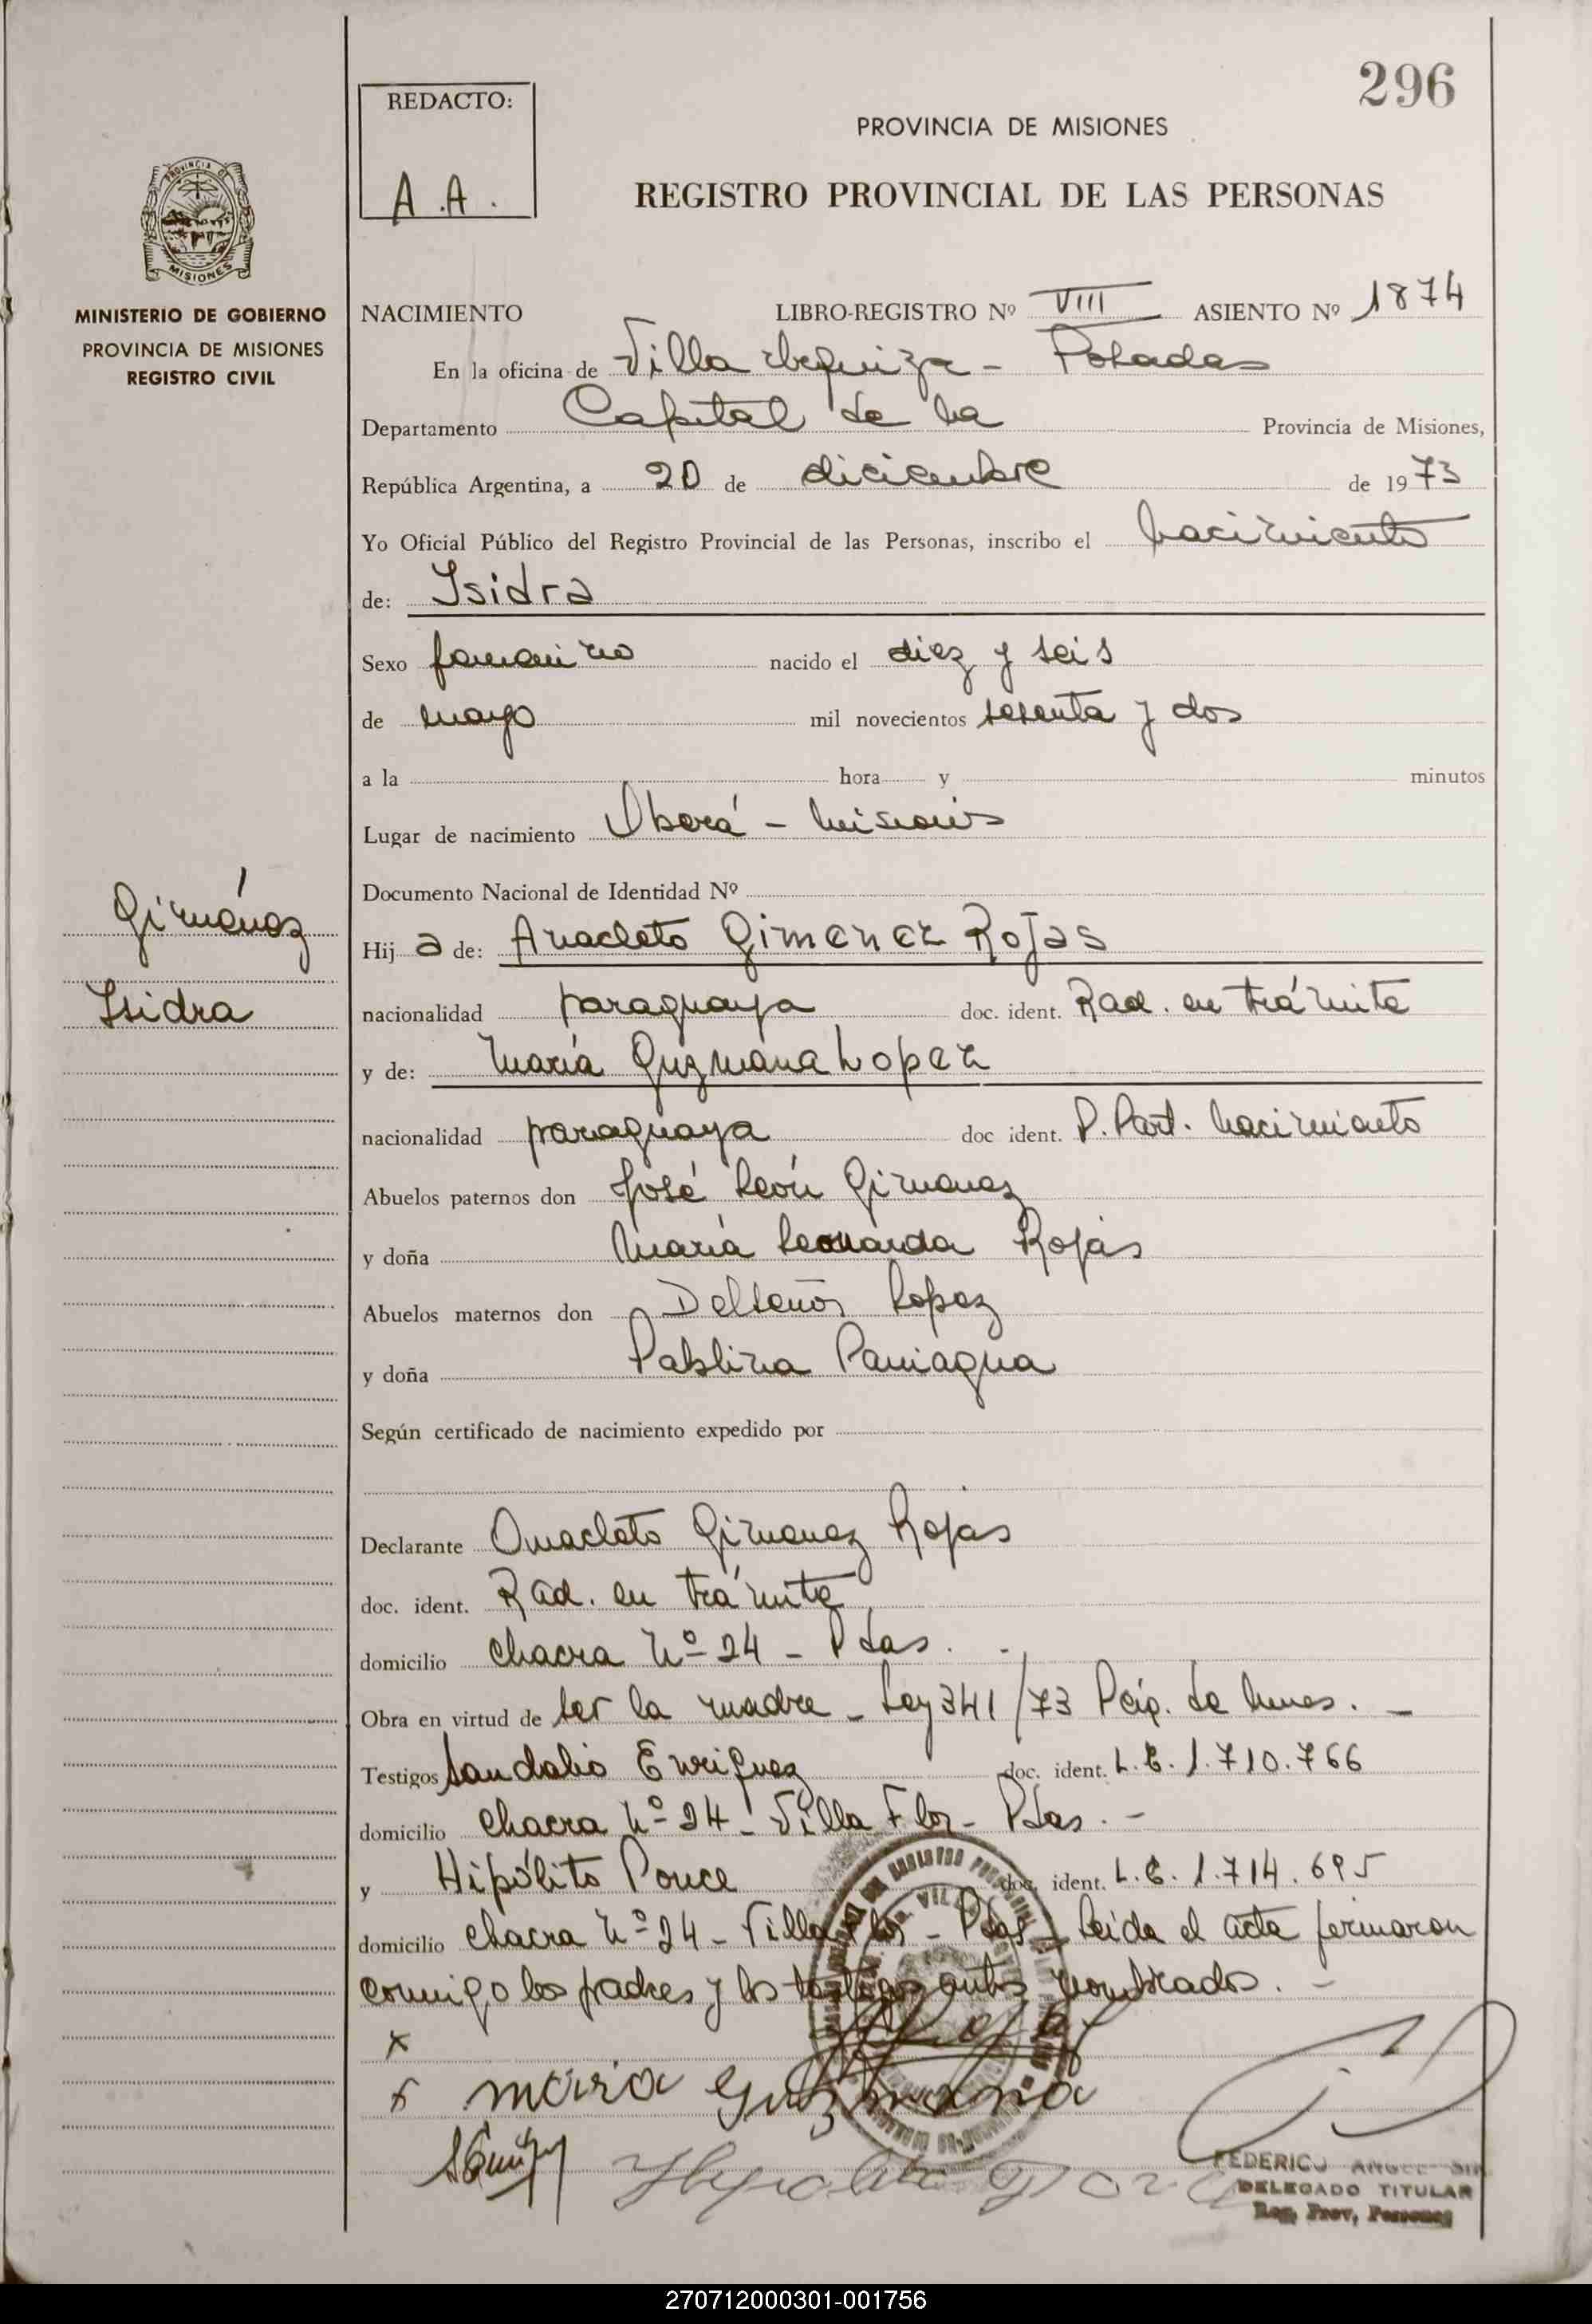 296
REDACTO:
A.A.
PROVINCIA DE MISIONES
REGISTRO PROVINCIAL DE LAS PERSONAS
MINISTERIO DE GOBIERNO
PROVINCIA DE MISIONES
REGISTRO CIVIL
NACIMIENTO LIBRO-REGISTRO Nº VIII ASIENTO Nº 1874
En la oficina de Villa Urquiza - Posadas
Departamento Capital de la Provincia de Misiones,
República Argentina, a 20 de diciembre de 1973
Yo Oficial Público del Registro Provincial de las Personas, inscribo el nacimiento
de: Isidra
Sexo femenino nacido el diez y seis
de mayo mil novecientos sesenta y dos
a la hora y minutos
Lugar de nacimiento Oberá - Misiones
Documento Nacional de Identidad Nº
Giménez
Isidra
Hij a de: Anacleto Gimenez Rojas
nacionalidad paraguaya doc. ident. Rad. en trámite
y de: María Guzmana Lopez
nacionalidad paraguaya doc ident. P. Part. nacimiento
Abuelos paternos don José León Gimenez
y doña María Leonarda Rojas
Abuelos maternos don Delseñor Lopez
y doña Pablina Paniagua
Según certificado de nacimiento expedido por
Declarante Anacleto Gimenez Rojas
doc. ident. Rad. en trámite
domicilio chacra Nº 24 - Pdas. -
Obra en virtud de ser la madre - Ley 341/73 de -
Testigos Sandalio Enriquez doc. ident. L.E. 1.710.766
domicilio chacra Nº 24 - Villa Flor - Pdas. -
y Hipólito Ponce doc. ident. L.E. 1.714.695
domicilio chacra Nº 24 - Villa Flor - Pdas - Leida el acta firmaron
conmigo los padres y los testigos antes nombrados. -
x
x maria guzmana
FEDERICO ANGEL
DELEGADO TITULAR
Reg. Prov. Personas
270712000301-001756